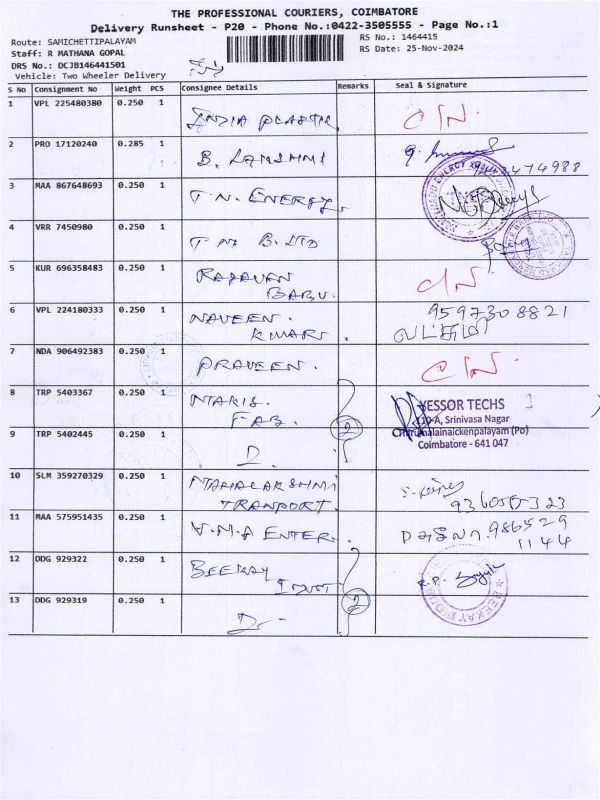 THE PROFESSIONAL COURIERS, COIMBATORE
Delivery Runsheet - P20 - Phone No.:0422-3505555 - Page No.:1
Route: SAMICHETTIPALAYAM
RS No.: 1464415
Staff: R MATHANA GOPAL
RS Date: 25-Nov-2024
DRS No.: DCJB146441501
Vehicle: Two Wheeler Delivery
S No Consignment No Weight PCS Consignee Details Remarks Seal & Signature
1 VPL 225480380 0.250 1 INDIA PLASTIC C/N.
2 PRO 17120240 0.285 1 B. LAKSHMI
3 MAA 867648693 0.250 1 T.N. ENERGY.
4 VRR 7450980 0.250 1 T N B. LTD
5 KUR 696358483 0.250 1 RAJAVEN C/N.
BABU.
6 VPL 224180333 0.250 1 NAVEEN 9597308821
KUMAR.
7 NDA 906492383 0.250 1 PRAVEEN. C/N.
8 TRP 5403367 0.250 1 NTARIS. YESSOR TECHS
FAB. 2 110-A, Srinivasa Nagar
Chinnamalainaickenpalayam (Po)
9 TRP 5402445 0.250 1 D. Coimbatore - 641 047
10 SLM 359270329 0.250 1 MAHALAKSHMI
TRANPORT.
11 MAA 575951435 0.250 1 V.M.A ENTER. 986529
1144
12 DDG 929322 0.250 1 BEEKAY R.P.
INDUST
13 DDG 929319 0.250 1 D 2